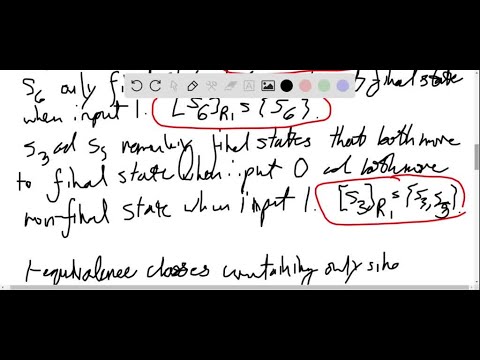 S6 only fi final state
when input 1. [S6]R1 = {S6}.
S3 ad S5 remaining final states that both move
to final state when input 0 ad both move
non-final state when input 1. [S3]R1 = {S3, S5}.
1-equivalence classes containing only